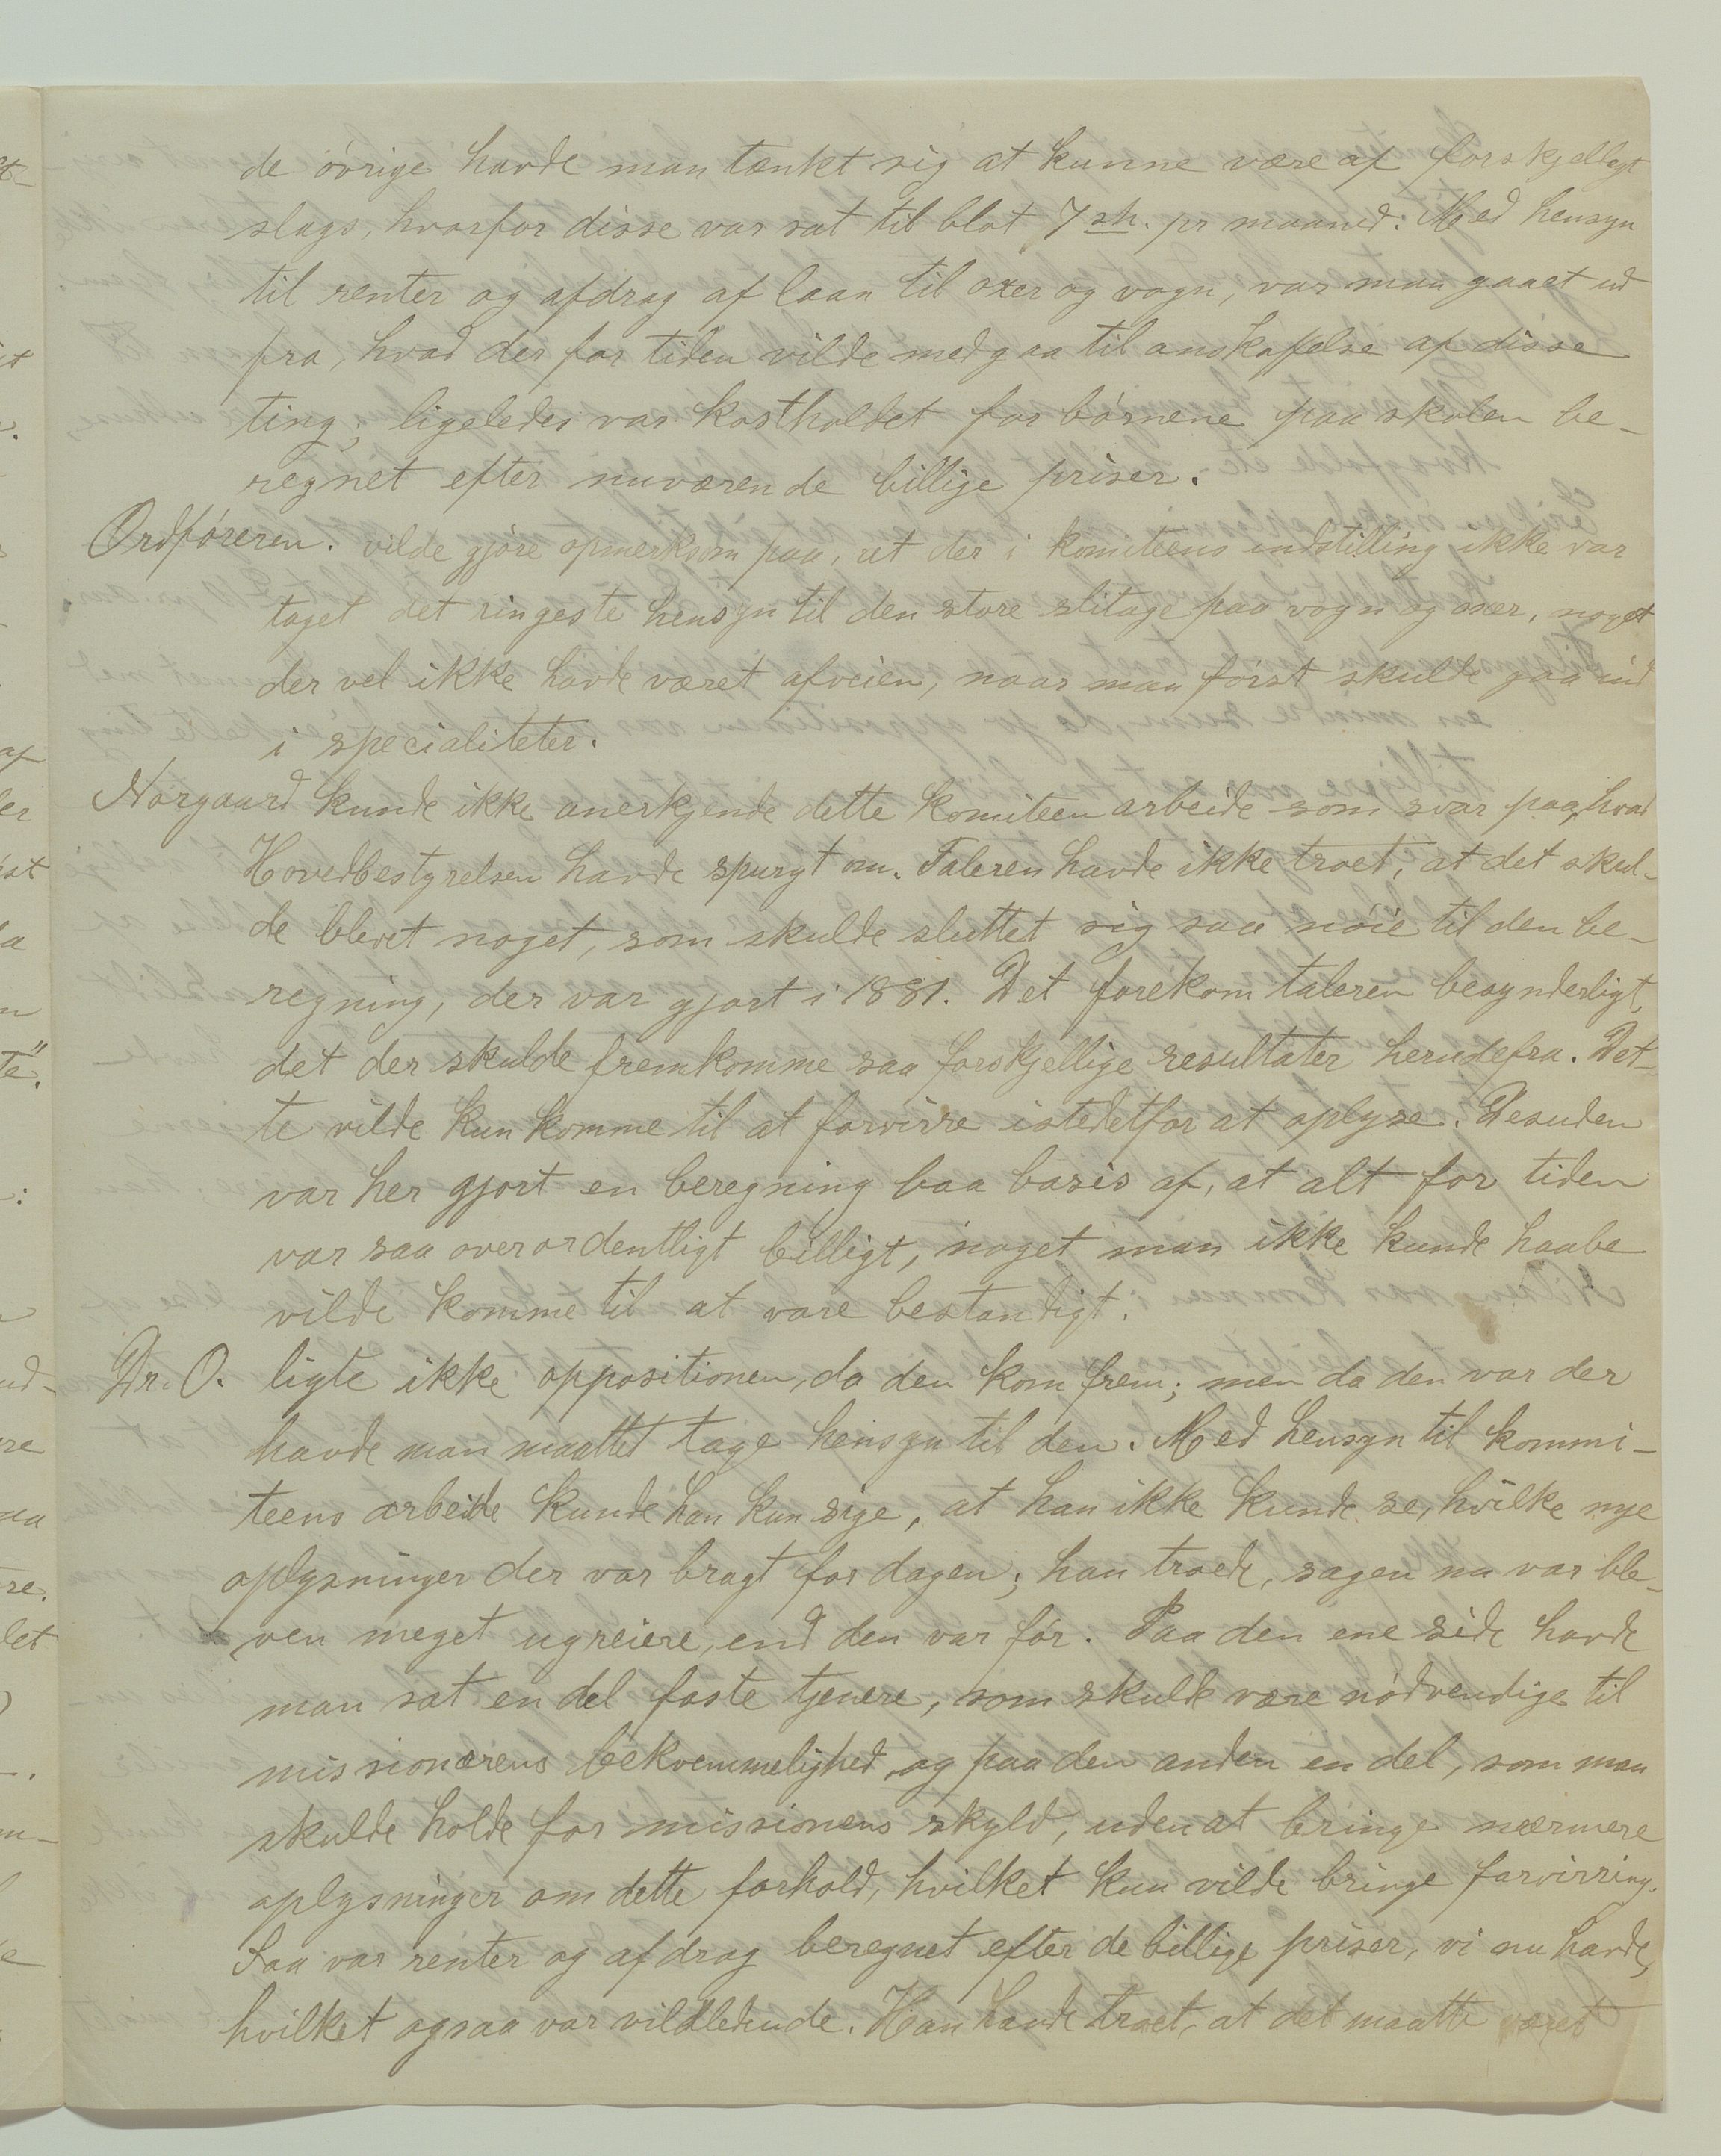 de øvrige havde man tænkt sig at kunne være af forskjelligt
slags, hvorfor disse var sat til blot 7 sh. pr maaned: Med hensyn
til renter og afdrag af laan til oxer og vogn, var man gaaet ud
fra, hvad der for tiden vilde medgaa til anskafelse af disse
ting; ligeledes var kostholdet for børnene paa skolen be-
regnet efter nuværende billige priser.
Ordføreren. vilde gjøre opmerksom paa, at der i komiteens indstilling ikke var
taget det ringeste hensyn til den store slitage paa vogn og oxer, noget
der vel ikke havde været afveien, naar man først skulde gaa ind
i specialiteter.
Norgaard kunde ikke anerkjende dette komiteenarbeide som svar paa, hvad
Hovedbestyrelsen havde spurgt om. Taleren havde ikke troet, at det skul-
de blevet noget, som skulde sluttet sig saa nøie til den be-
regning, der var gjort i 1881. Det forekom taleren besynderligt,
det der skulde fremkomme saa forskjellige resultater herudefra. Det-
te vilde kun komme til at forvirre istedetfor at oplyse. Desuden
var her gjort en beregning baa basis af, at alt for tiden
var saa overordentligt billigt, noget man ikke kunde haabe
vilde komme til at vare bestandigt.
Dr. O. ligte ikke oppositionen, da den kom frem; men da den var der
havde man maattet tage hensyn til den. Med hensyn til kommi-
teens arbeide kunde han kun sige, at han ikke kunde se, hvilke nye
oplysninger der var bragt for dagen; han troede, sagen nu var ble-
ven meget ugreiere, end den var før. Paa den ene side havde
man sat en del faste tjenere, som skulde være nødvendige til
missionærens bekvemmelighed, og paa den anden en del, som man
skulde holde for missionens skyld, uden at bringe nærmere
oplysninger om dette forhold, hvilket kun vilde bringe forvirring.
Saa var renter og afdrag beregnet efter de billige priser, vi nu havde,
hvilket ogsaa var vildledende. Han havde troet, at det maatte været